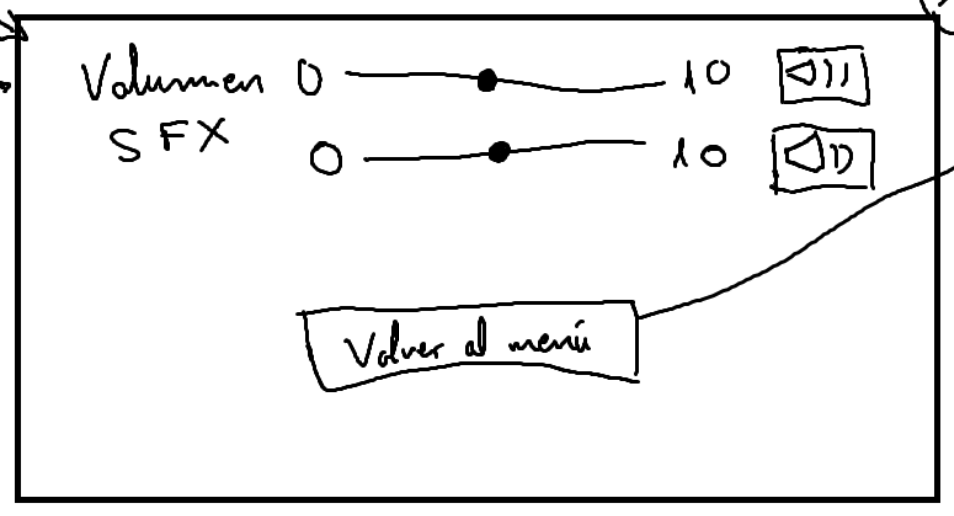 Volumen 0 10
SFX 0 10
Volver al menú